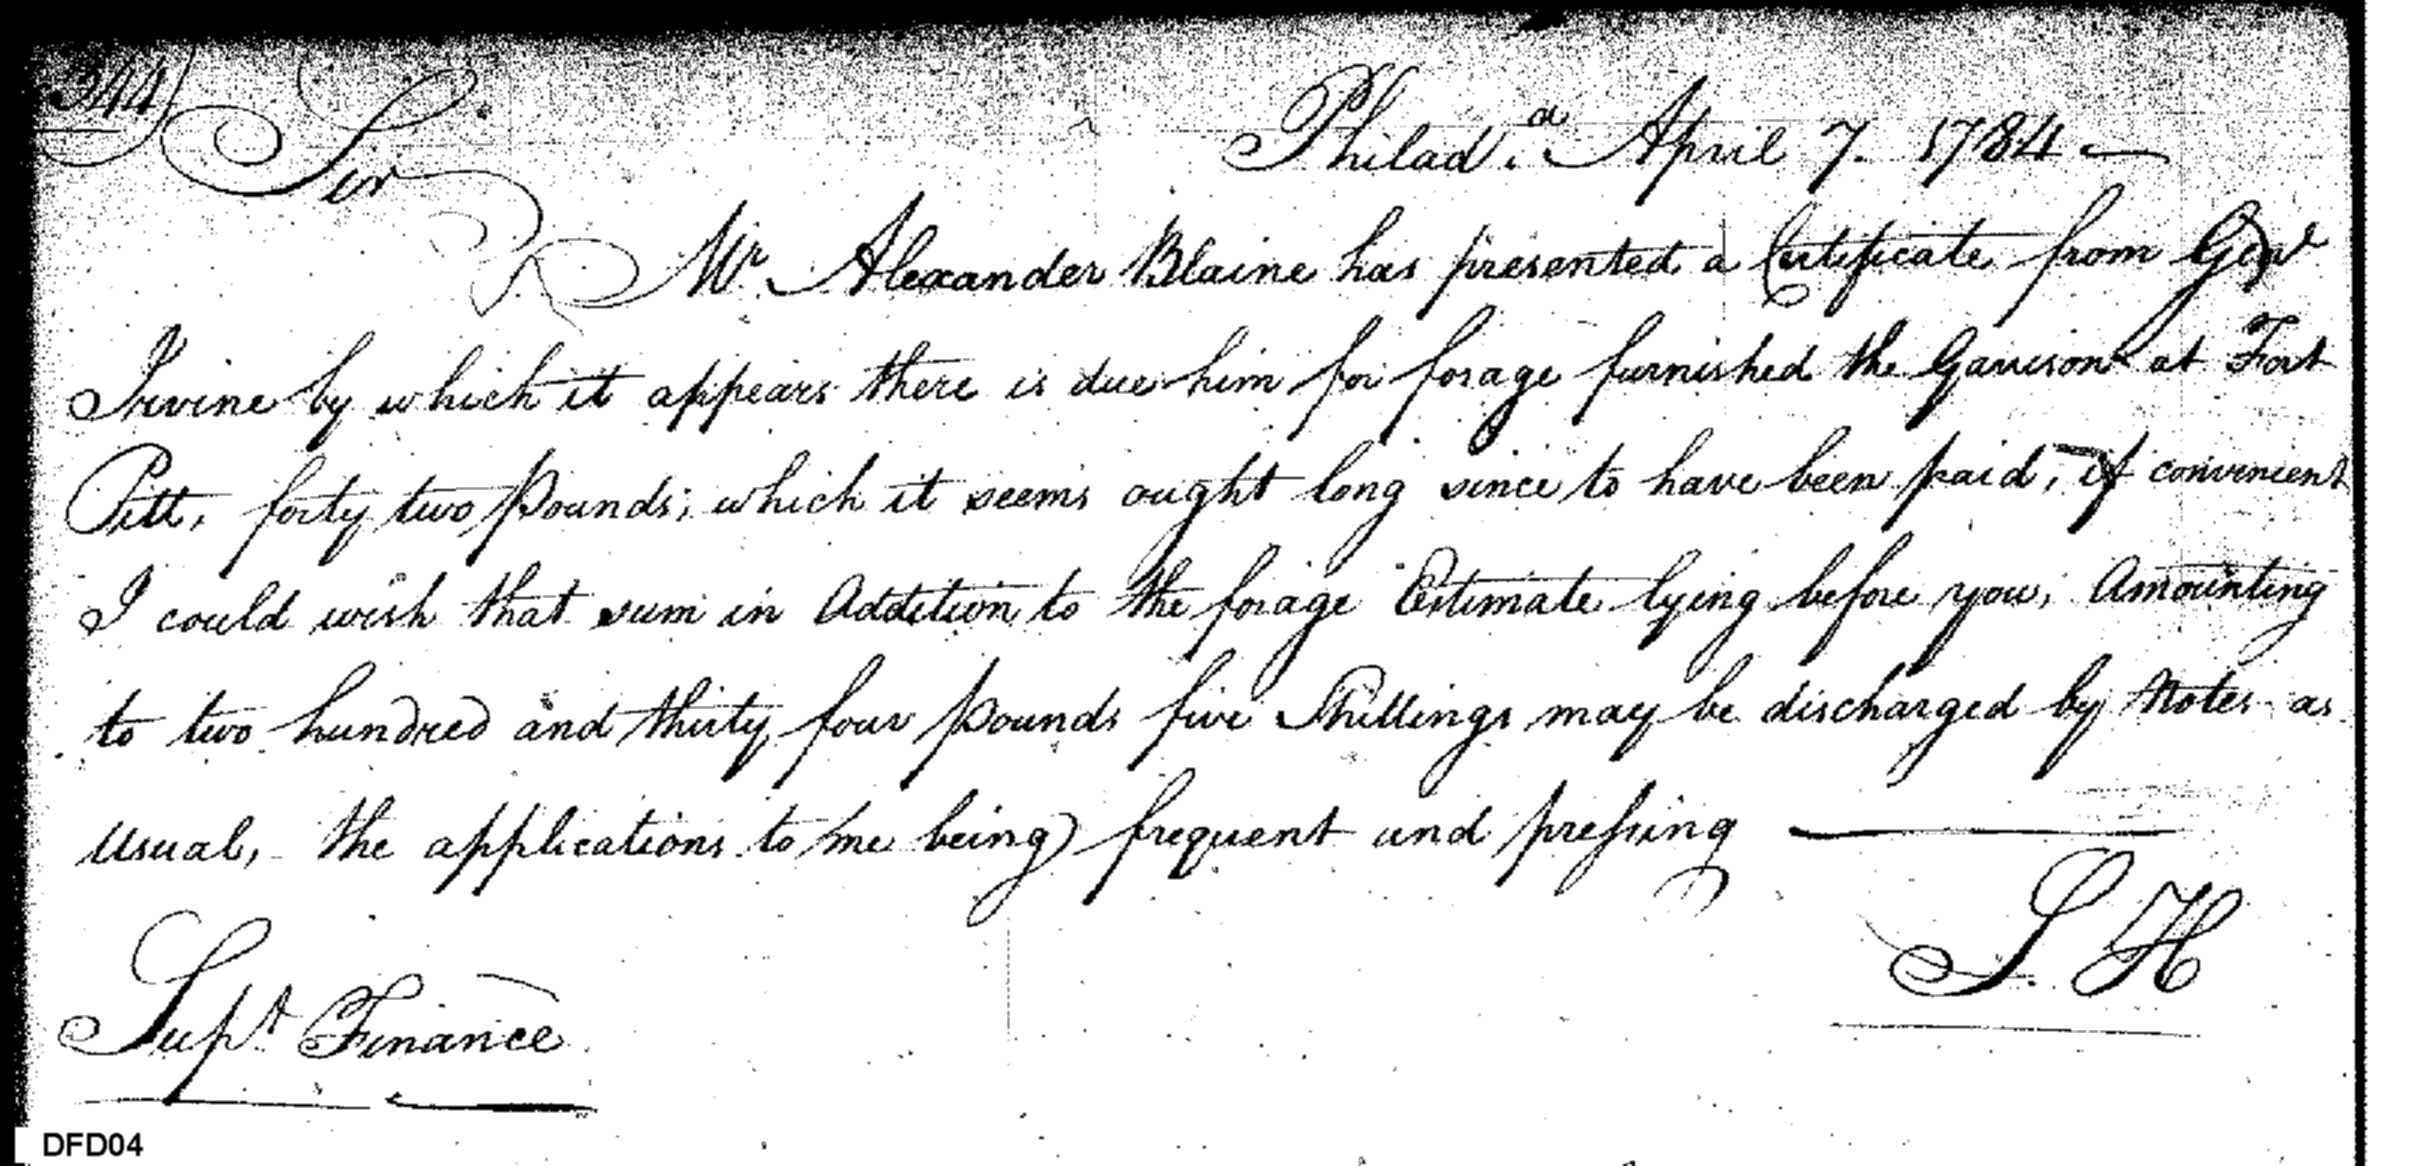 344
Sir Philad.a April 7. 1784 —
Mr. Alexander Blaine has presented a Certificate from Genl
Irvine by which it appears there is due him for forage furnished the Garrison at Fort
Pitt, forty two Pounds; which it seems ought long since to have been paid, if convenient
I could wish that sum in Addition to the forage Estimate lying before you, Amounting
to two hundred and thirty four pounds five Shillings may be discharged by Notes as
usual, the applications to me being frequent and pressing —
S. H
Supt. Finance
DFD04